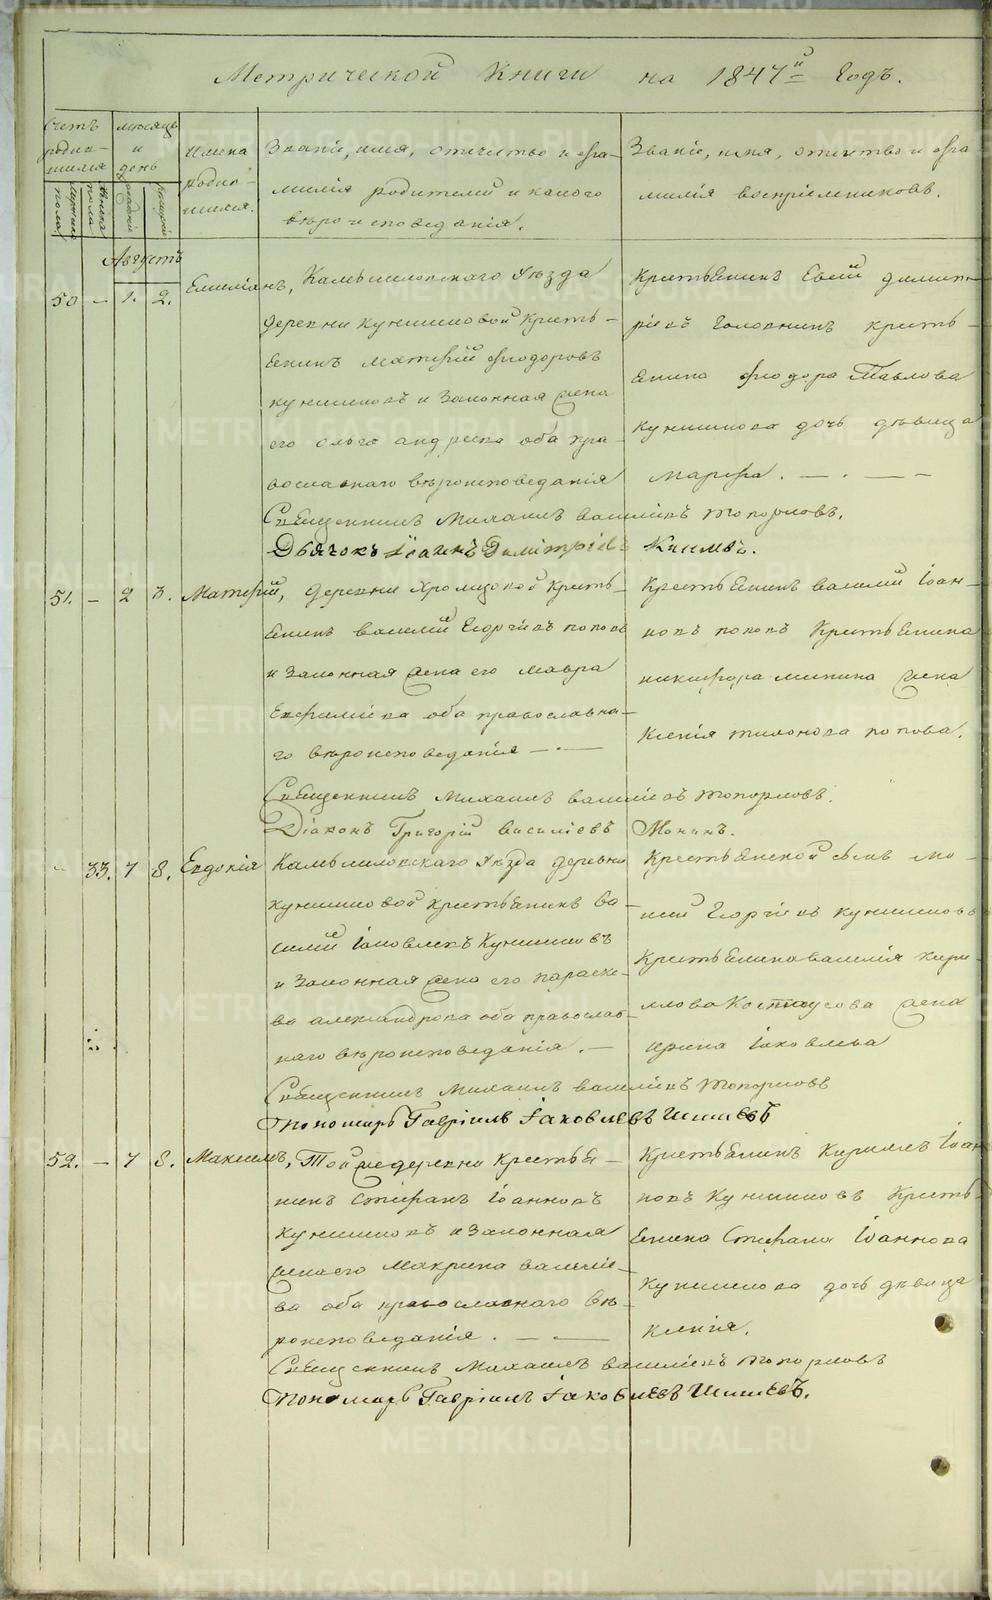 Метрической Книги на 1847й Годъ.
Счетъ родив-шихся
мужеска пола
женска пола
месяцъ и день
рождения
крещения
Имена родив-шихся.
Званiе, имя, отчество и фа-
милiя родителей и какого
вероисповеданiя.
Званiе, имя, отчество и фа
милiя воспрiемниковъ.
Августъ
50 — 1. 2.
Емелiанъ, Камышловскаго Уезда
деревни Куншиковой Кресть-
янинъ Матфей Феодоровъ
и Законная жена
его Ольга Андреева оба пра-
вославнаго вероисповеданiя
Крестьянинъ Евсей Димит-
рiевъ Головинъ Кресть-
янина Феодора Павлова
дочь девица
Марфа. — . — —
Священникъ Михаилъ Василiевъ Топорковъ.
Дьячокъ Iоаннъ Димитрiевъ
51. — 2 3. Матфей, Деревни Хромцовой Кресть-
янинъ Василий Георгiевъ Поповъ
и Законная жена его Мавра
Евфимiева оба православна-
го вероисповеданiя — . —
Крестьянинъ Василий Iоан-
новъ Поповъ Крестьянина
Никифора жена
Ксенiя Тихонова Попова.
Священникъ Михаилъ Василiевъ Топорковъ.
Дiаконъ Григорiй Василiевъ
— 33. 7 8. Евдокiя Камышловскаго Уезда деревни
Крестьянинъ Ва
силий Iаковлевъ
и Законная жена его Параске-
ва Александрова оба православ-
наго вероисповеданiя. —
Крестьянской сынъ
Георгiевъ
Крестьянина Василiя Кири-
лова жена
Ирина Iаковлева
Священникъ Михаилъ Василiевъ Топорковъ
Пономарь Гаврiилъ Iаковлевъ Шишевъ
52. — 7 8. Максимъ, Той же деревни Крестья-
нинъ Стефанъ Iоанновъ
и Законная
жена его Макрина Василiе-
ва оба православнаго ве-
роисповеданiя. — —
Крестьянинъ Кирилъ Iоан
новъ Кресть-
янина Стефана Iоаннова
дочь девица
Ксенiя.
Священникъ Михаилъ Василiевъ Топорковъ
Пономарь Гаврiилъ Iаковлевъ Шишевъ.
METRIKI.GASO-URAL.RU